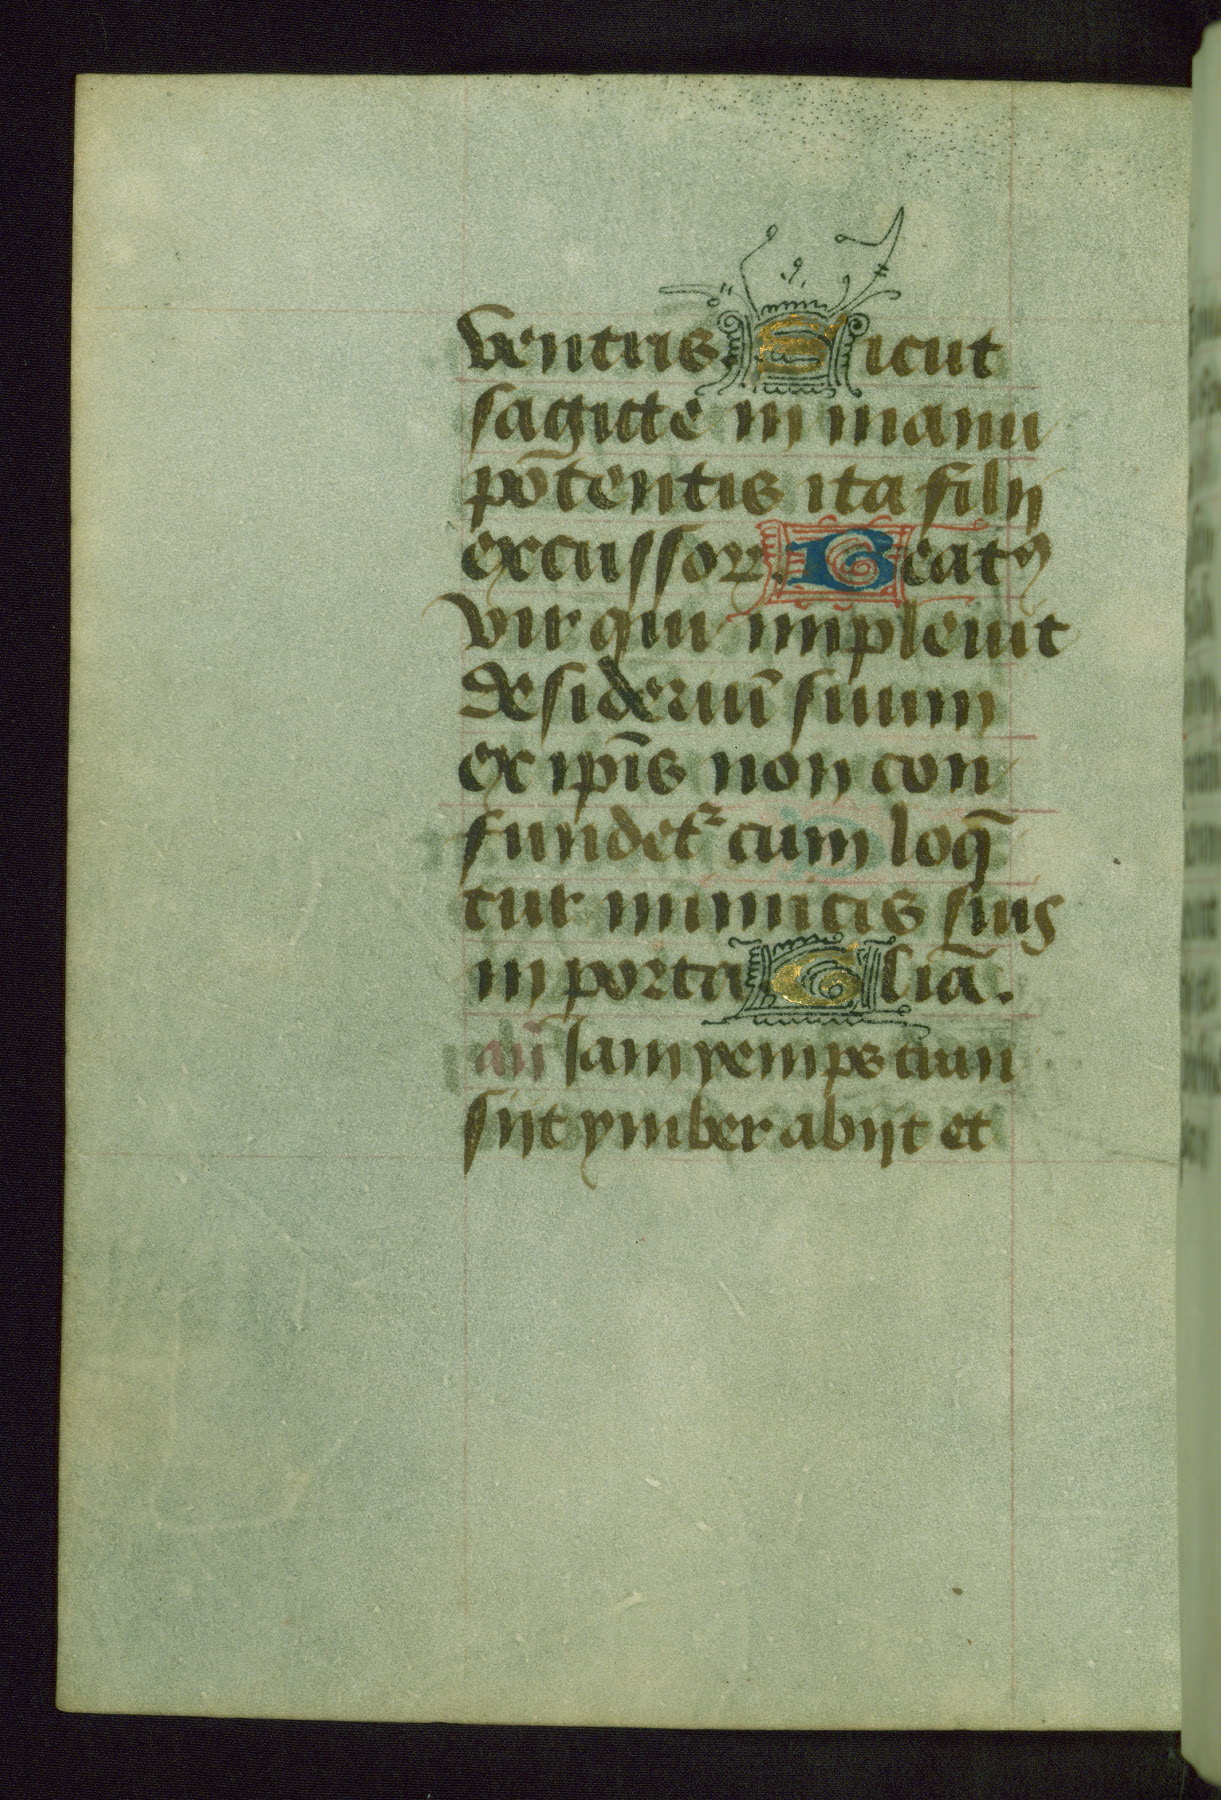 ventris. Sicut
sagitte in manu
põtentis ita filij
excussoꝝ. Beatꝯ
vir qui impleuit
desideriũ suum
ex ip̃is non con
fundet᷑ cum loq̃
tur inimicis suis
in porta Gliã.
añ Iam yemps tran
sijt ymber abijt et